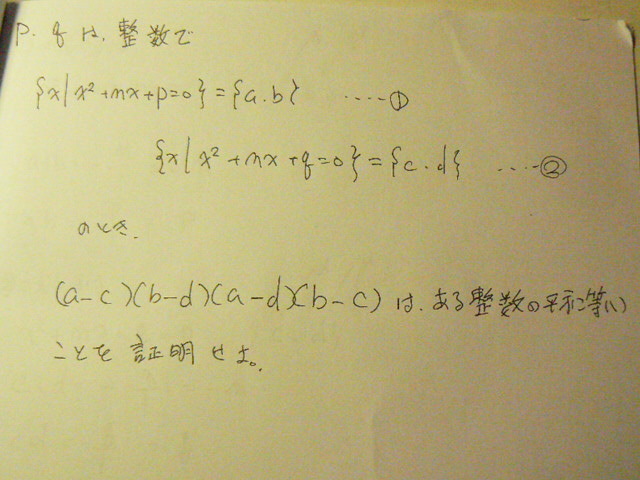 p. q は、整数で
{x|x²+mx+p=0}={a.b} ‥‥①
{x|x²+mx+q=0}={c.d} ‥‥②
のとき、
(a-c)(b-d)(a-d)(b-c) は、ある整数の平方に等しい
ことを 証明 せよ。